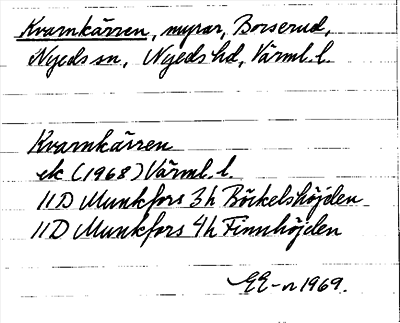 Kvarnkärren, myrar, Borserud,
Nyeds sn, Nyeds hd, Värml. l.
Kvarnkärren
ek (1968) Värml. l.
11D Munkfors 3h Böckelshöjden
11D Munkfors 4h Finnhöjden
EE-n 1969.